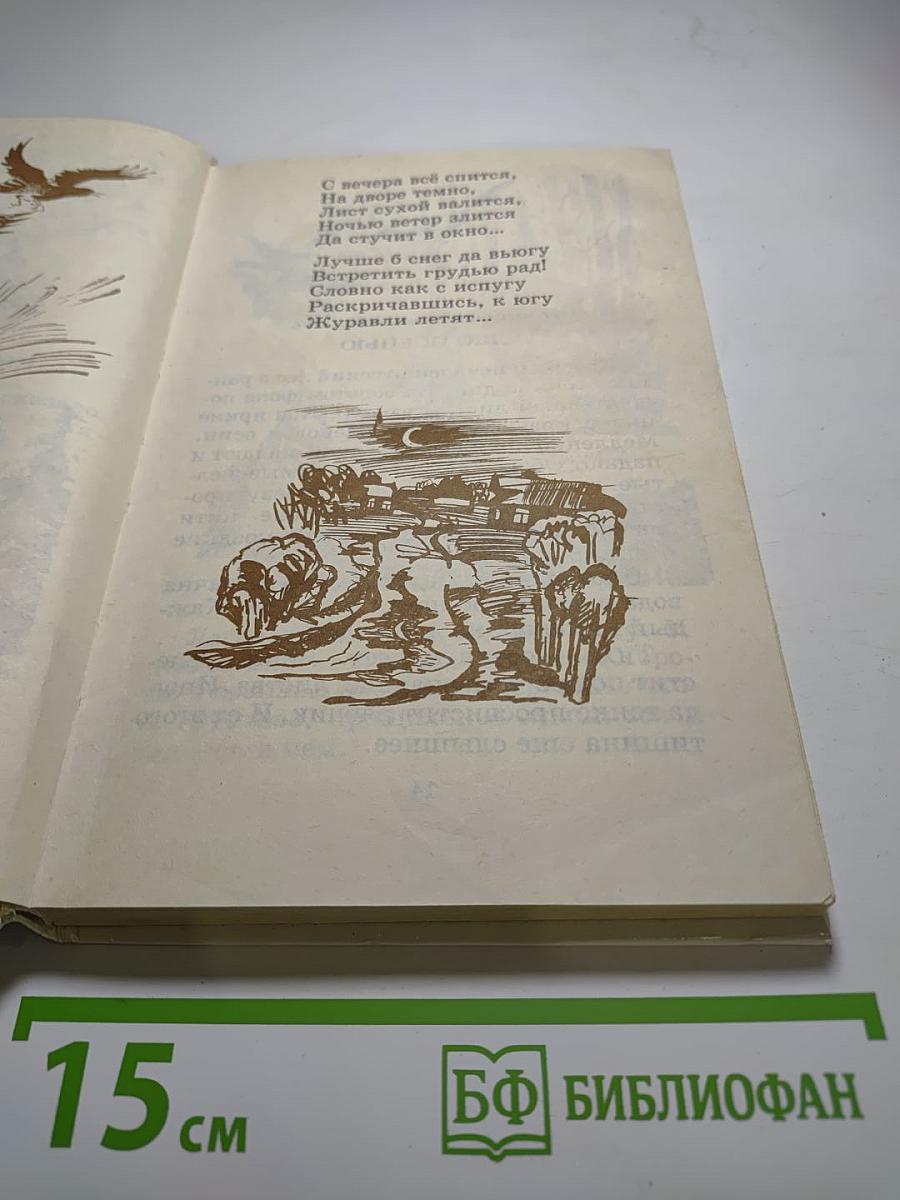 С вечера всё спится,
На дворе темно,
Лист сухой валится,
Ночью ветер злится
Да стучит в окно...
Лучше б снег да вьюгу
Встретить грудью рад!
Словно как с испугу
Раскричавшись, к югу
Журавли летят...
15 см
БФ БИБЛИОФАН